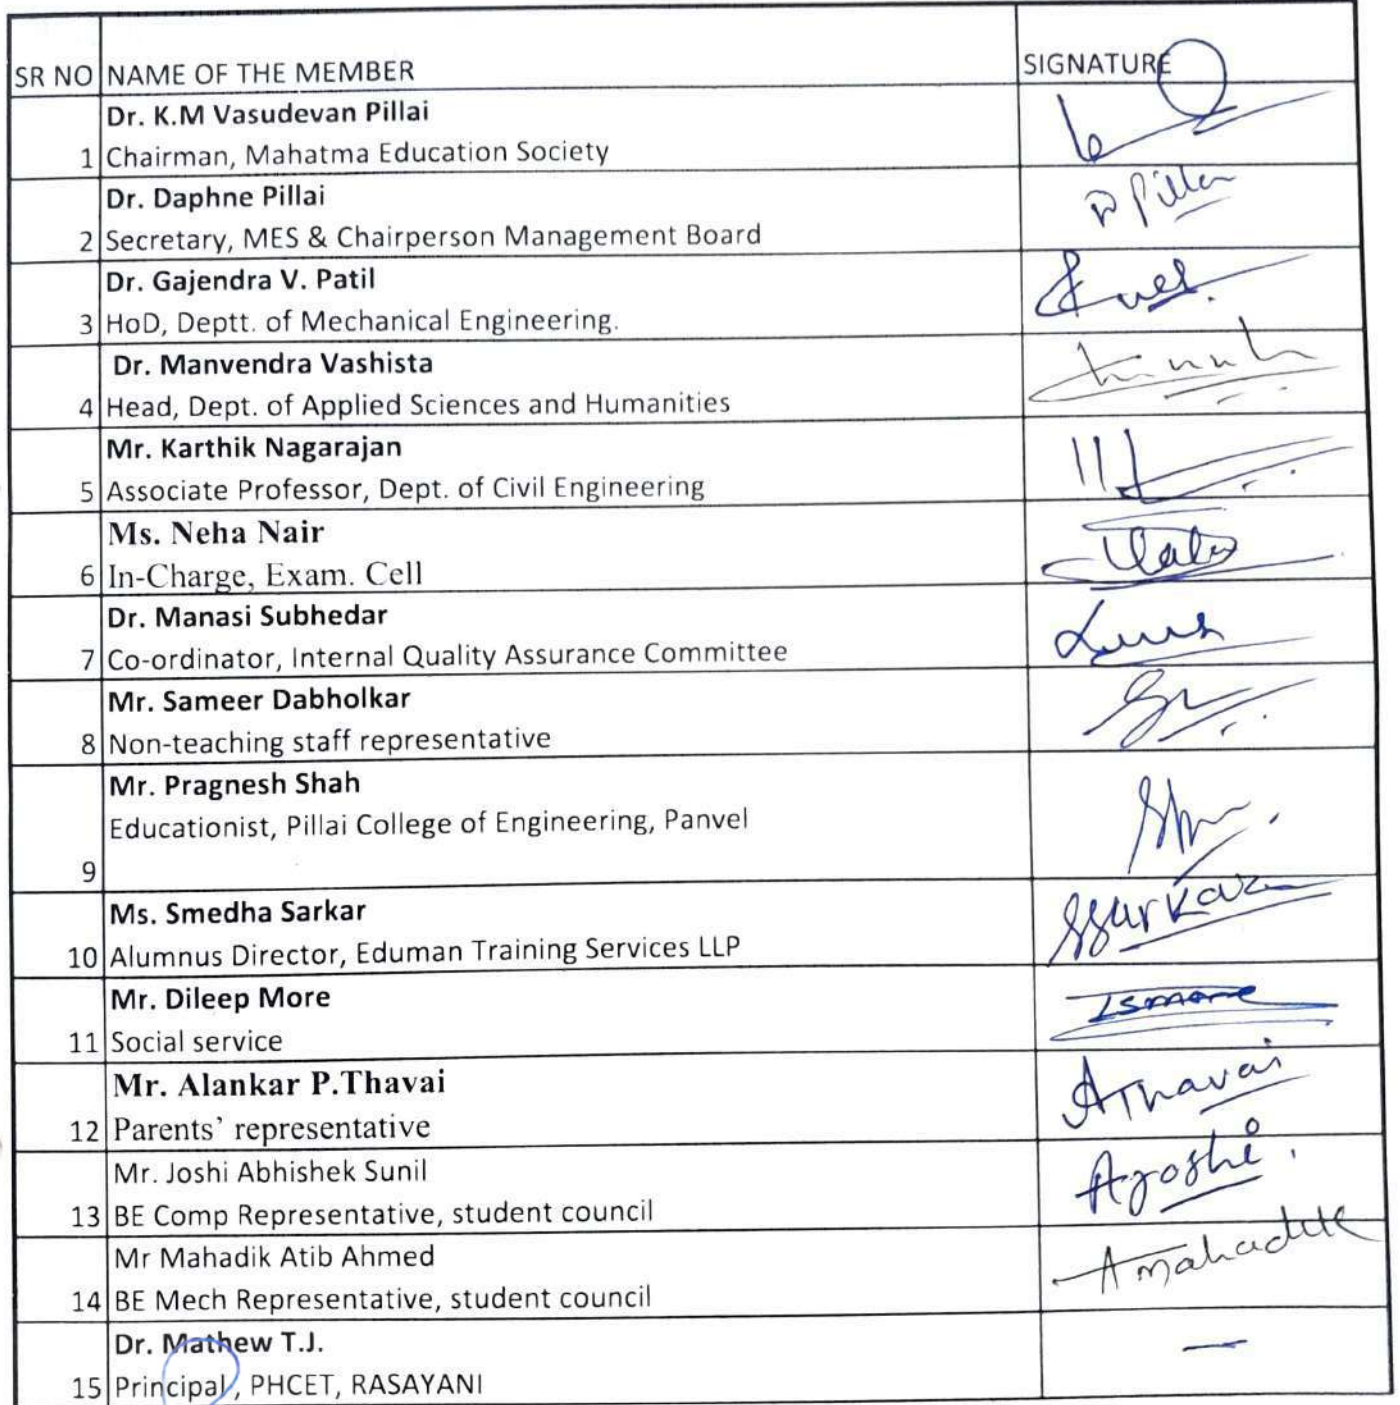 SR NO NAME OF THE MEMBER SIGNATURE
Dr. K.M Vasudevan Pillai
1 Chairman, Mahatma Education Society
Dr. Daphne Pillai D Pillai
2 Secretary, MES & Chairperson Management Board
Dr. Gajendra V. Patil
3 HoD, Deptt. of Mechanical Engineering.
Dr. Manvendra Vashista
4 Head, Dept. of Applied Sciences and Humanities
Mr. Karthik Nagarajan
5 Associate Professor, Dept. of Civil Engineering
Ms. Neha Nair
6 In-Charge, Exam. Cell
Dr. Manasi Subhedar
7 Co-ordinator, Internal Quality Assurance Committee
Mr. Sameer Dabholkar
8 Non-teaching staff representative
Mr. Pragnesh Shah
Educationist, Pillai College of Engineering, Panvel
9
Ms. Smedha Sarkar SSarkar
10 Alumnus Director, Eduman Training Services LLP
Mr. Dileep More
11 Social service
Mr. Alankar P.Thavai AThavai
12 Parents’ representative
Mr. Joshi Abhishek Sunil AJoshi.
13 BE Comp Representative, student council
Mr Mahadik Atib Ahmed Amahadik
14 BE Mech Representative, student council
Dr. Mathew T.J. —
15 Principal, PHCET, RASAYANI